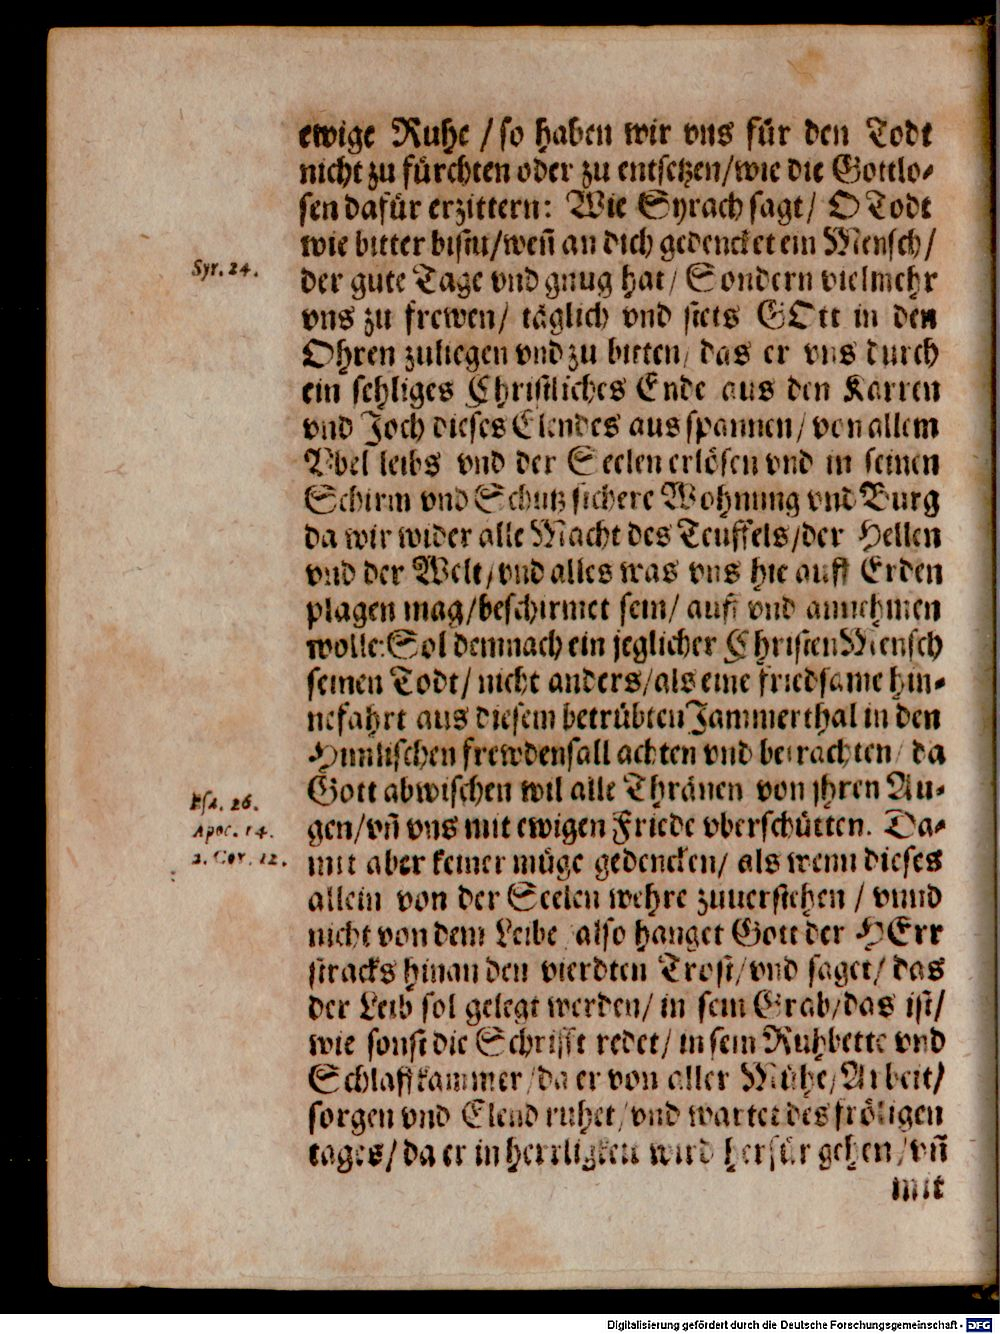 ewige Ruhe / so haben wir vns für den Todt
nicht zu fürchten oder zu entsetzen/wie die Gottlo-
sen dafür erzittern: Wie Syrach sagt/ O Todt
wie bitter bistu/weñ an dich gedencket ein Mensch/
Syr. 24.
der gute Tage vnd gnug hat/ Sondern vielmehr
vns zu frewen/ täglich vnd stets GOtt in den
Ohren zuliegen vnd zu bitten/ das er vns durch
ein sehliges Christliches Ende aus den Karren
vnd Joch dieses Elendes ausspannen/ von allem
Vbel leibs vnd der Seelen erlösen vnd in seinen
Schirm vnd Schutz sichere Wohnung vnd Burg
da wir wider alle Macht des Teuffels/der Hellen
vnd der Welt/vnd alles was vns hie auff Erden
plagen mag/beschirmet sein/ auff vnd annehmen
wolle: Sol demnach ein jeglicher ChristenMensch
seinen Todt/ nicht anders/als eine friedsame hin-
nefahrt aus diesem betrübten Jammerthal in den
Himlischen frewdensall achten vnd betrachten/ da
Gott abwischen wil alle Thränen von jhren Au-
Esa. 26.
gen/vñ vns mit ewigen Friede vberschütten. Da-
Apoc. 14.
mit aber keiner müge gedencken/ als wenn dieses
2. Cor. 12.
allein von der Seelen wehre zuuerstehen / vnnd
nicht von dem Leibe/ also hanget Gott der HErr
stracks hinan den vierdten Trost/vnd saget/ das
der Leib sol gelegt werden/ in sein Grab/das ist/
wie sonst die Schrifft redet/ in sein Ruhbette vnd
Schlaffkammer/da er von aller Mühe/Arbeit/
sorgen vnd Elend ruhet/vnd wartet des fröligen
tages/ da er in herrligkeit wird herfür gehen/vñ
mit
Digitalisierung gefördert durch die Deutsche Forschungsgemeinschaft - DFG